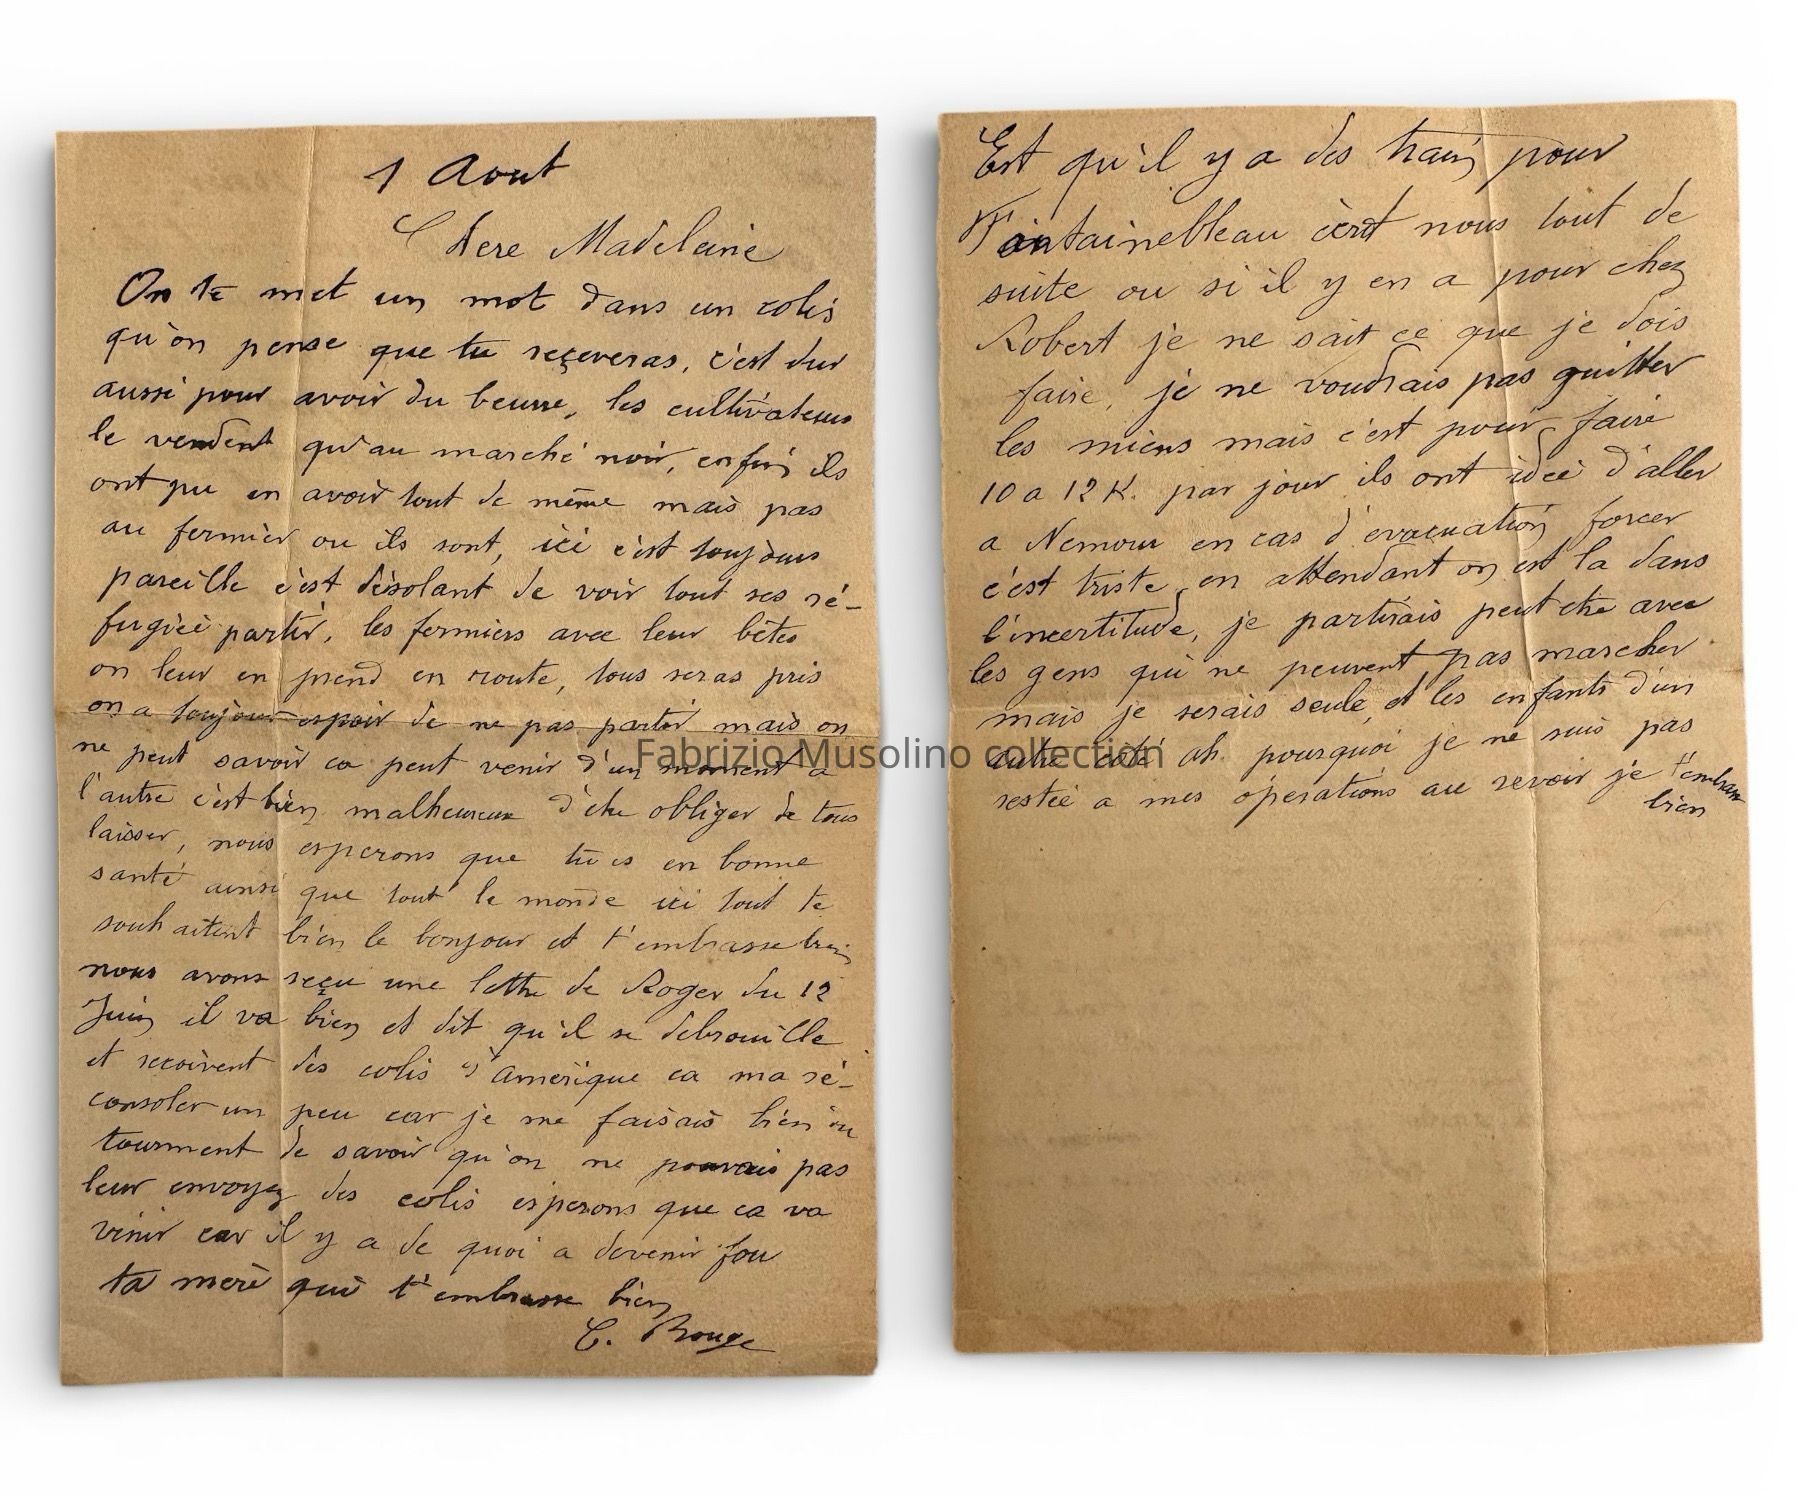 1 Aout
Chere Madeleine
On te met un mot dans un colis
qu'on pense que tu reçeveras, c'est dur
aussi pour avoir du beurre, les cultivateurs
le vendent qu'au marché noir, enfin ils
ont pu en avoir tout de même mais pas
au fermier ou ils sont, ici c'est toujours
pareille c'est désolant de voir tout ses ré-
fugiéé partir, les fermiers avec leur bêtes
on leur en prend en route, tous seras pris
on a toujour espoir de ne pas partir mais on
ne peut savoir ca peut venir d'un moment a
l'autre c'est bien malheureux d'etre obliger de tous
laisser, nous esperons que tu es en bonne
santé ainsi que tout le monde ici tout te
souhaitent bien le bonjour et t'embrasse bien
nous avons reçu une lettre de Roger du 12
Juin il va bien et dit qu'il se debrouille
et recoivent des colis d'Amerique ca ma ré-
consoler un peu car je me faisais bien du
tourment de savoir qu'on ne pouvais pas
leur envoyez des colis esperons que ca va
venir car il y a de quoi a devenir fou
ta merè qui t'embrasse bien
C. Rouge
Est qu'il y a des train pour
Fontainebleau ècrit nous tout de
suite ou si il y en a pour chez
Robert je ne sait ce que je dois
faire, je ne voudrais pas quitter
les miens mais c'est pour faire
10 a 12 K. par jour ils ont ideé d'aller
a Nemour en cas d'evacuation forcer
c'est triste, en attendant on est la dans
l'incertitude, je partirais peut etre avec
les gens qui ne peuvent pas marcher
mais je serais seule, et les enfants d'un
autre coté ah pourquoi je ne suis pas
restéé a mes óperations au revoir je t'embrasse
bien
Fabrizio Musolino collection